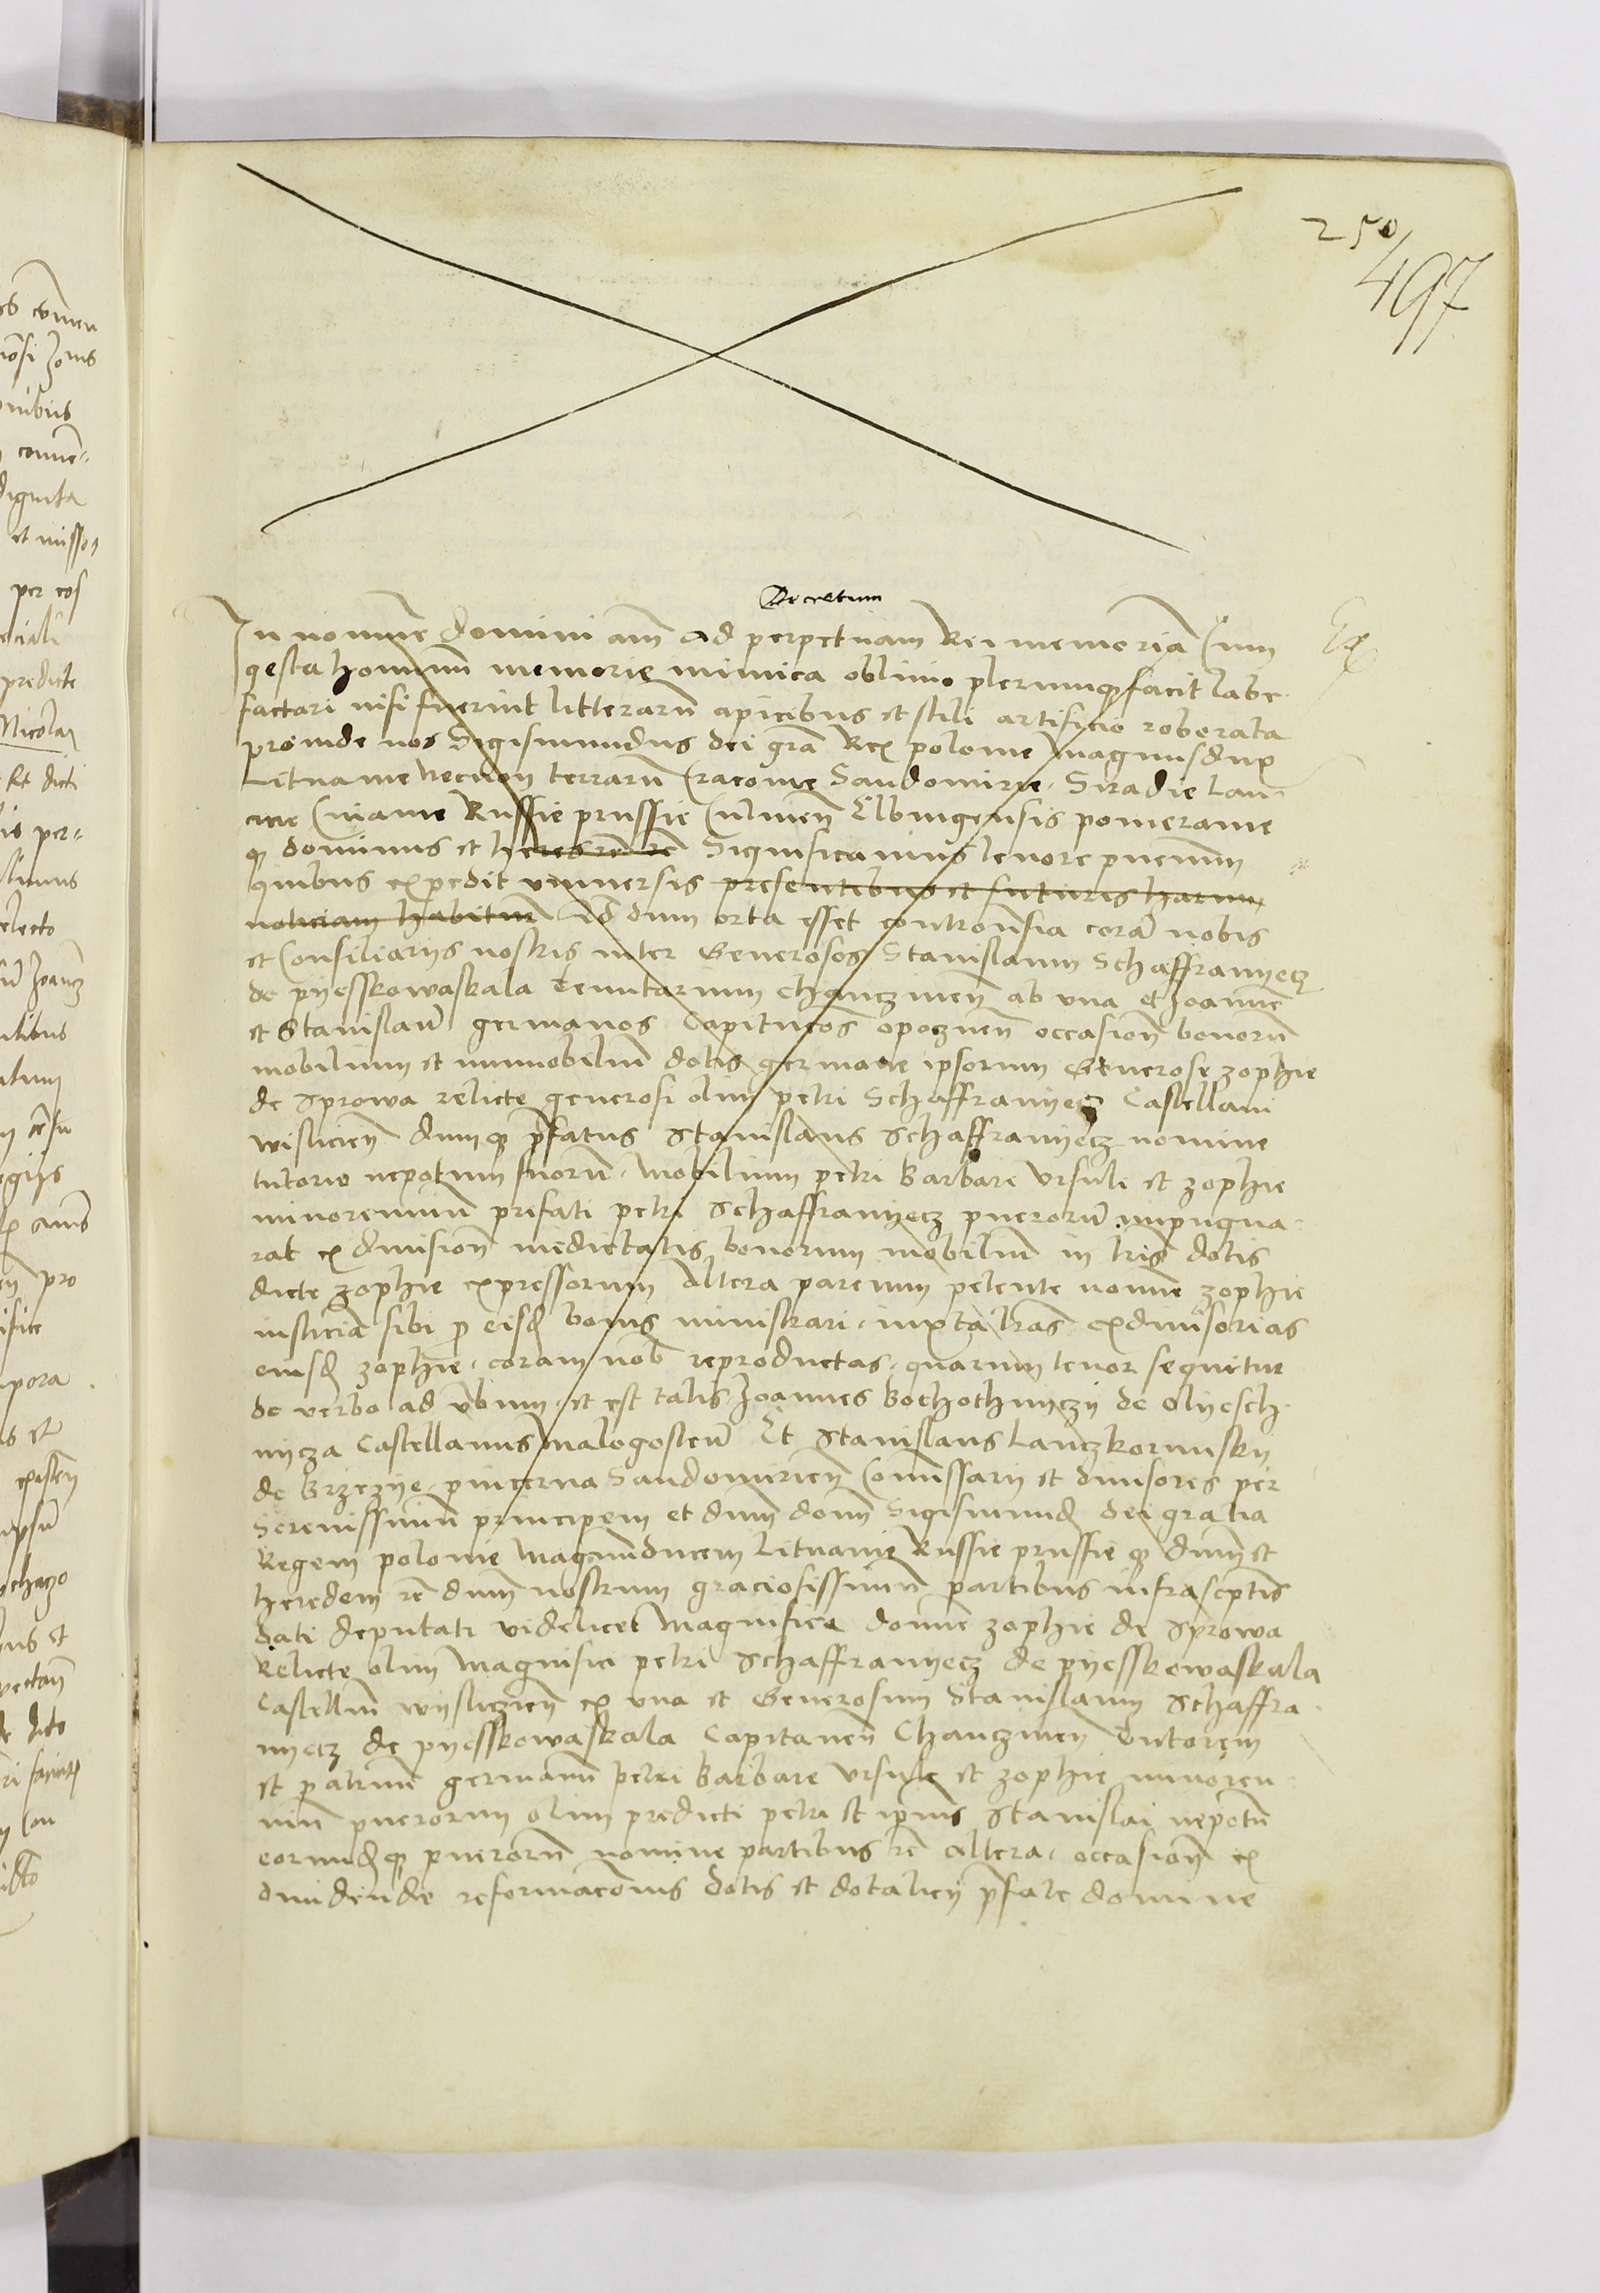 250
497
Decretum
In nomine domini am̄ Ad perpetuam Rei memoriā Cum
Ex
gesta hominum̄ memorie inimica oblivio plerumqꝫ facit labe
factari nisi fuerint litterarū apicibus et stili artificio roborata
proinde nos Sigismundus dei grā Rex polonie Magnusdux
Lituanie necnon terrarū Cracovie Sandomirie Siradie Lan
cicie Cuiavie Russie prussie Culmeñ Elbingensis pomeranie
qꝫ dominus et heres rē rē Significamus tenore pñcium
quibus expedit universis presentibus et futuris harum
noticiam habiturꝭ Id dum orta esset controv̄sia corā nobis
et Consiliariis nostris inter Generosos Stanislaum Schaffranyecz
de pyesskowaskala Tenutarium chanczineñ ab una et Joannē
et Stanislaū germanos Capitaneos opoczneñ occasioñ bonorū
mobilium et immobiliū dotis germane ipsorum Generose zophie
de Sprowa relicte generosi olim petri Schaffranyecz Castellani
wislicieñ dumqꝫ p̄fatus Stanislaus Schaffranyecz nomine
tutorio nepotum suorū mobilium petri barbare ursule et zophie
minorennium prefati petri Schaffranyecz puerorū impugna
rat exdivisioñ medietatis bonorum mobiliū in lris dotis
dicte zophie expressorum altera parcium petente nomine zophie
iusticiā sibi p̄ eisd bonis ministrari iuxta lrās exdivisorias
eiusd zophie coram nob reproductas quarum tenor sequitur
de verbo ad v̄bum et est talis Joannes bochothniczy de Olyesch
nycza Castellanus malogosteñ Et Stanislaus Lanczkorunsky
de brzezye pincerna Sandomirieñ Comissarii et divisores per
Serenissimū principem et dnm̄ dom̄ Sigismund dei gratia
Regem polonie Magnūducem Lituanie Russie prussie qꝫ dnm̄ et
heredem rē dnm̄ nostrum graciosissimū partibus infrascptis
dati deputati videlicet Magnifice domine zophie de Sprowa
Relicte olim Magnifici petri Schaffranyecz de pyesskowaskala
Castellani wysliczieñ ex una et Generosum Stanislaum Schaffra
nyecz de pyesskowaskala Capitaneū Chanczineñ tutorem
et patruū germanū petri barbare ursule et zophie minoren
niū puerorum olim predicti petri et ipsius Stanislai nepotū
eorundqꝫ puerorū nomine partibus rē altera occasioñ ex
dividende reformacōnis dotis et dotalicy p̄fate domine